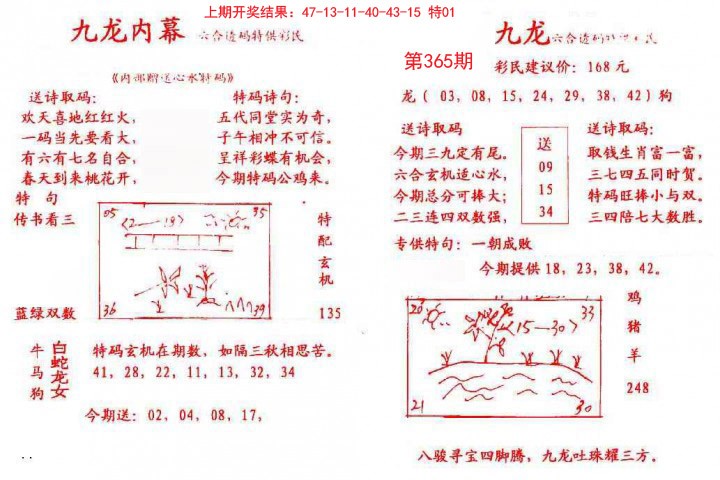 上期开奖结果：47-13-11-40-43-15 特01
九龙内幕 六合透码特供彩民
《内部赠送心水特码》
送诗取码：
欢天喜地红红火，
一码当先要看大，
有六有七名自合，
春天到来桃花开，
特码诗句：
五代同堂实为奇，
子午相冲不可信。
呈祥彩蝶有机会，
今期特码公鸡来。
特句
传书看三
蓝绿双数
05
35
36
39
特配玄机
135
牛马狗
白蛇龙女
特码玄机在期数，如隔三秋相思苦。
41，28，22，11，13，32，34
今期送：02，04，08，17，
九龙 六合透码
第365期
彩民建议价：168元
龙（03，08，15，24，29，38，42）狗
送诗取码
今期三九定有尾。
六合玄机适心水，
今期总分可捧大；
二三连四双数强，
送
09
15
34
送诗取码：
取钱生肖富一富，
三七四五同时贺。
特码旺捧小与双。
三四陪七大数胜。
专供特句：一朝成败
今期提供18，23，38，42。
20
33
<15—30>
21
30
鸡
猪
羊
248
八骏寻宝四脚腾，九龙吐珠耀三方。